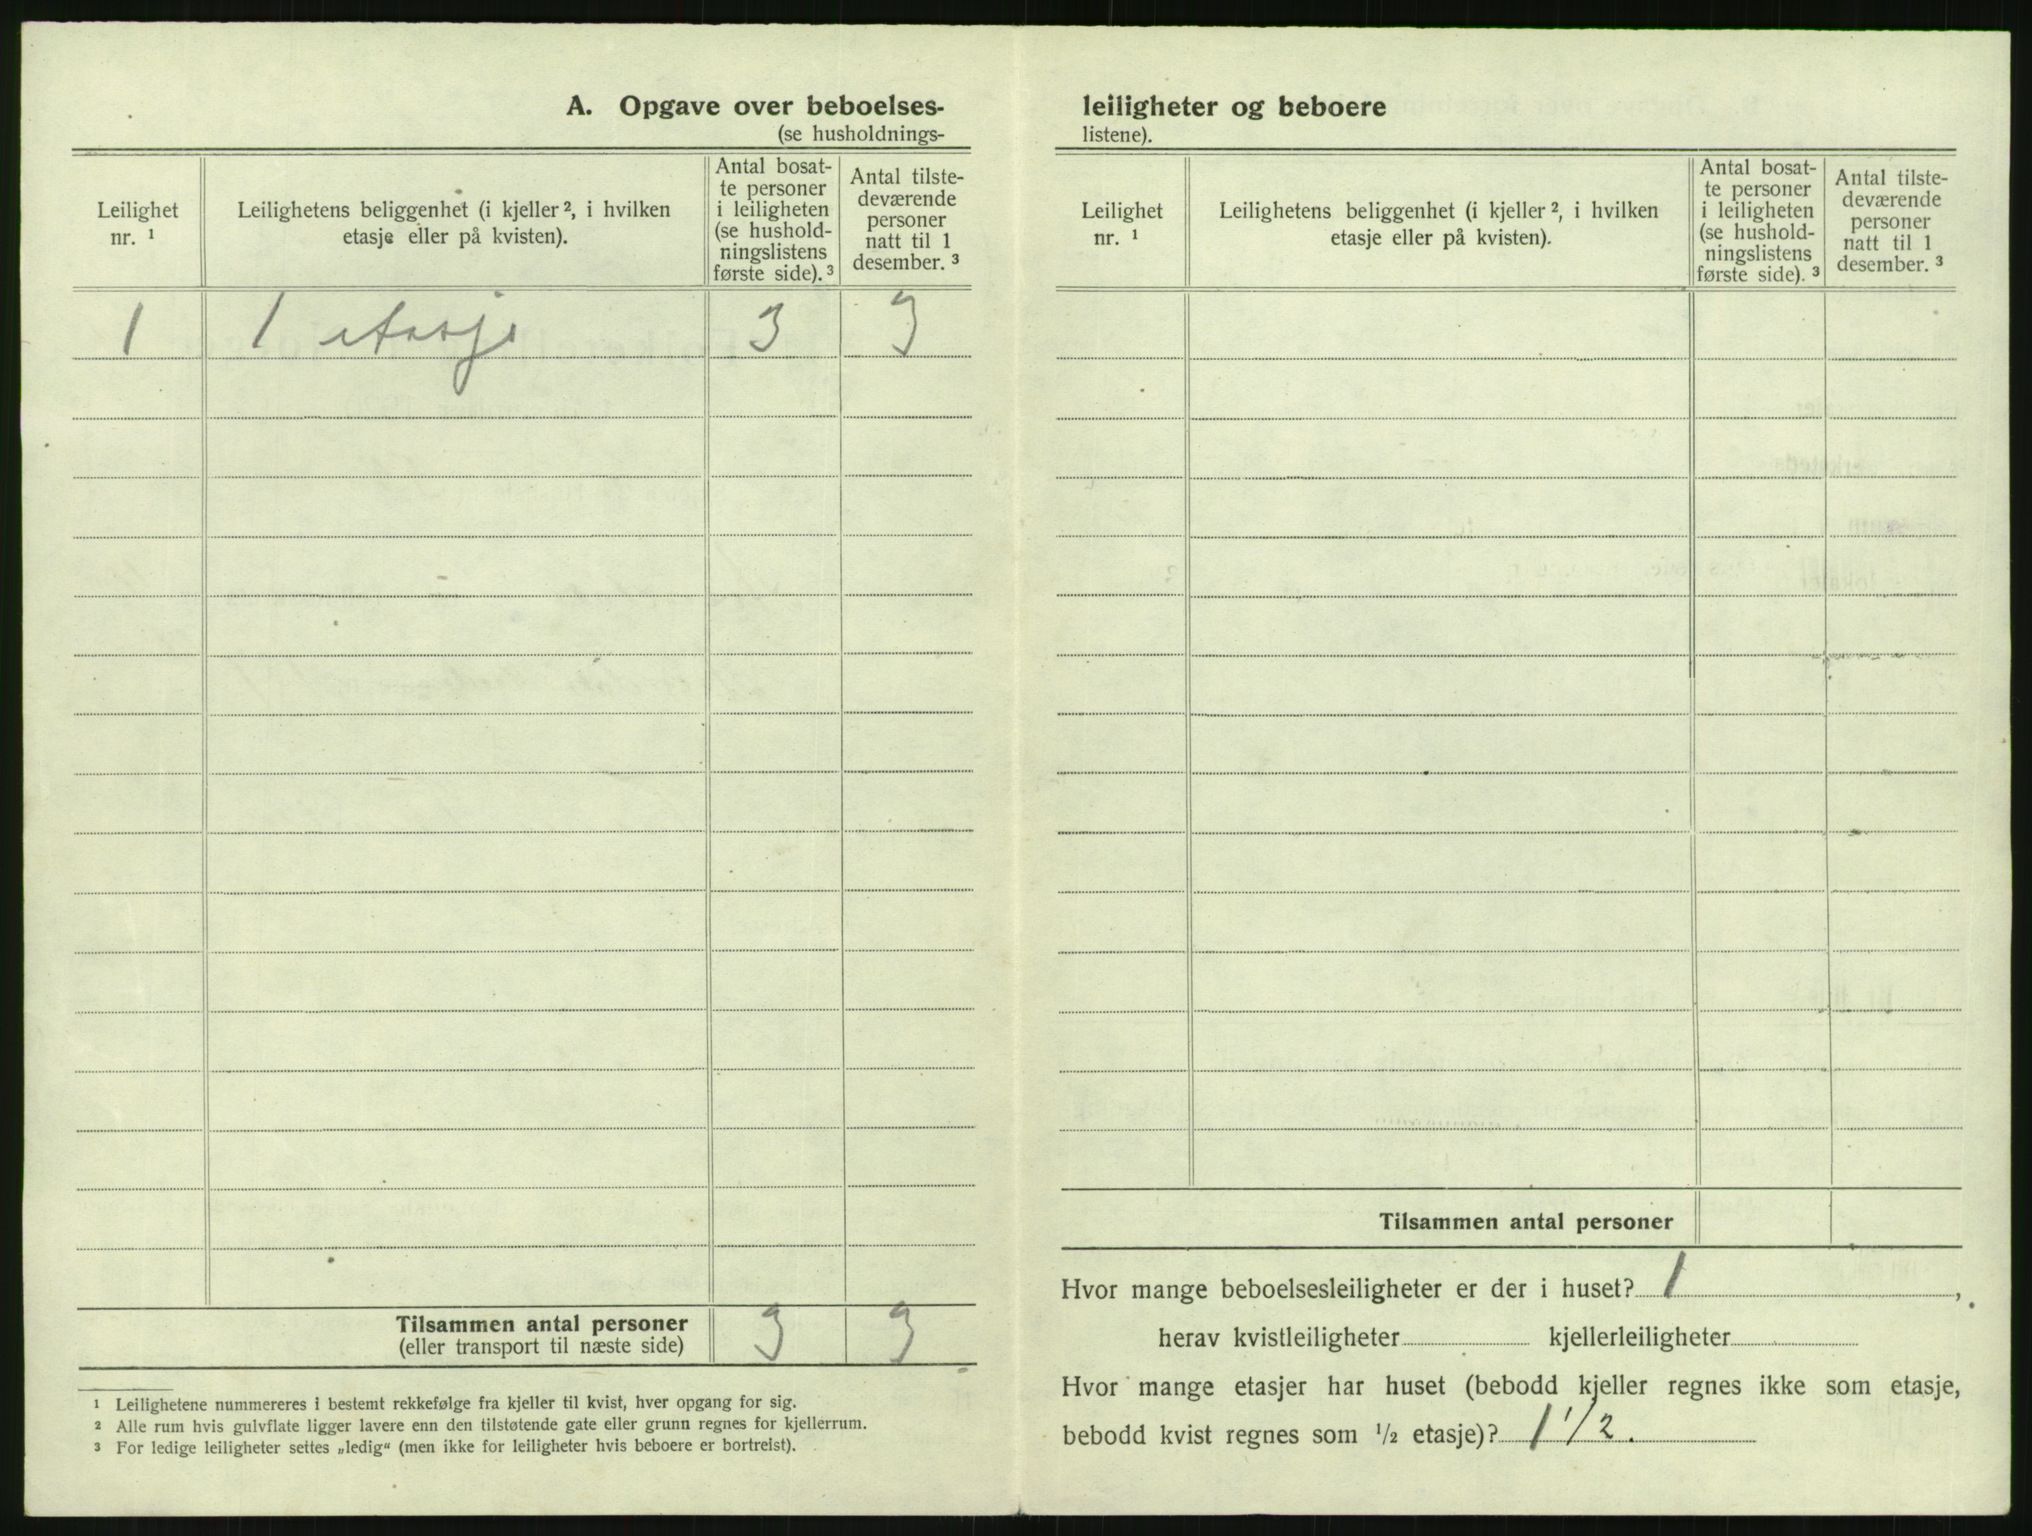 A. Opgave over beboelses-
(se husholdnings-
Leilighet nr. ¹
Leilighetens beliggenhet (i kjeller ², i hvilken etasje eller på kvisten).
Antal bosat-
te personer
i leiligheten
(se hushold-
ningslistens
første side). ³
Antal tilste-
deværende
personer
natt til 1
desember. ³
1 1 etasje 3 3
Tilsammen antal personer 3 3
(eller transport til næste side)
¹ Leilighetene nummereres i bestemt rekkefølge fra kjeller til kvist, hver opgang for sig.
² Alle rum hvis gulvflate ligger lavere enn den tilstøtende gate eller grunn regnes for kjellerrum.
³ For ledige leiligheter settes „ledig“ (men ikke for leiligheter hvis beboere er bortreist).
leiligheter og beboere
listene).
Leilighet nr. ¹
Leilighetens beliggenhet (i kjeller ², i hvilken etasje eller på kvisten).
Antal bosat-
te personer
i leiligheten
(se hushold-
ningslistens
første side). ³
Antal tilste-
deværende
personer
natt til 1
desember. ³
Tilsammen antal personer
Hvor mange beboelsesleiligheter er der i huset? 1,
herav kvistleiligheter kjellerleiligheter
Hvor mange etasjer har huset (bebodd kjeller regnes ikke som etasje,
bebodd kvist regnes som ½ etasje)? 1 1/2.